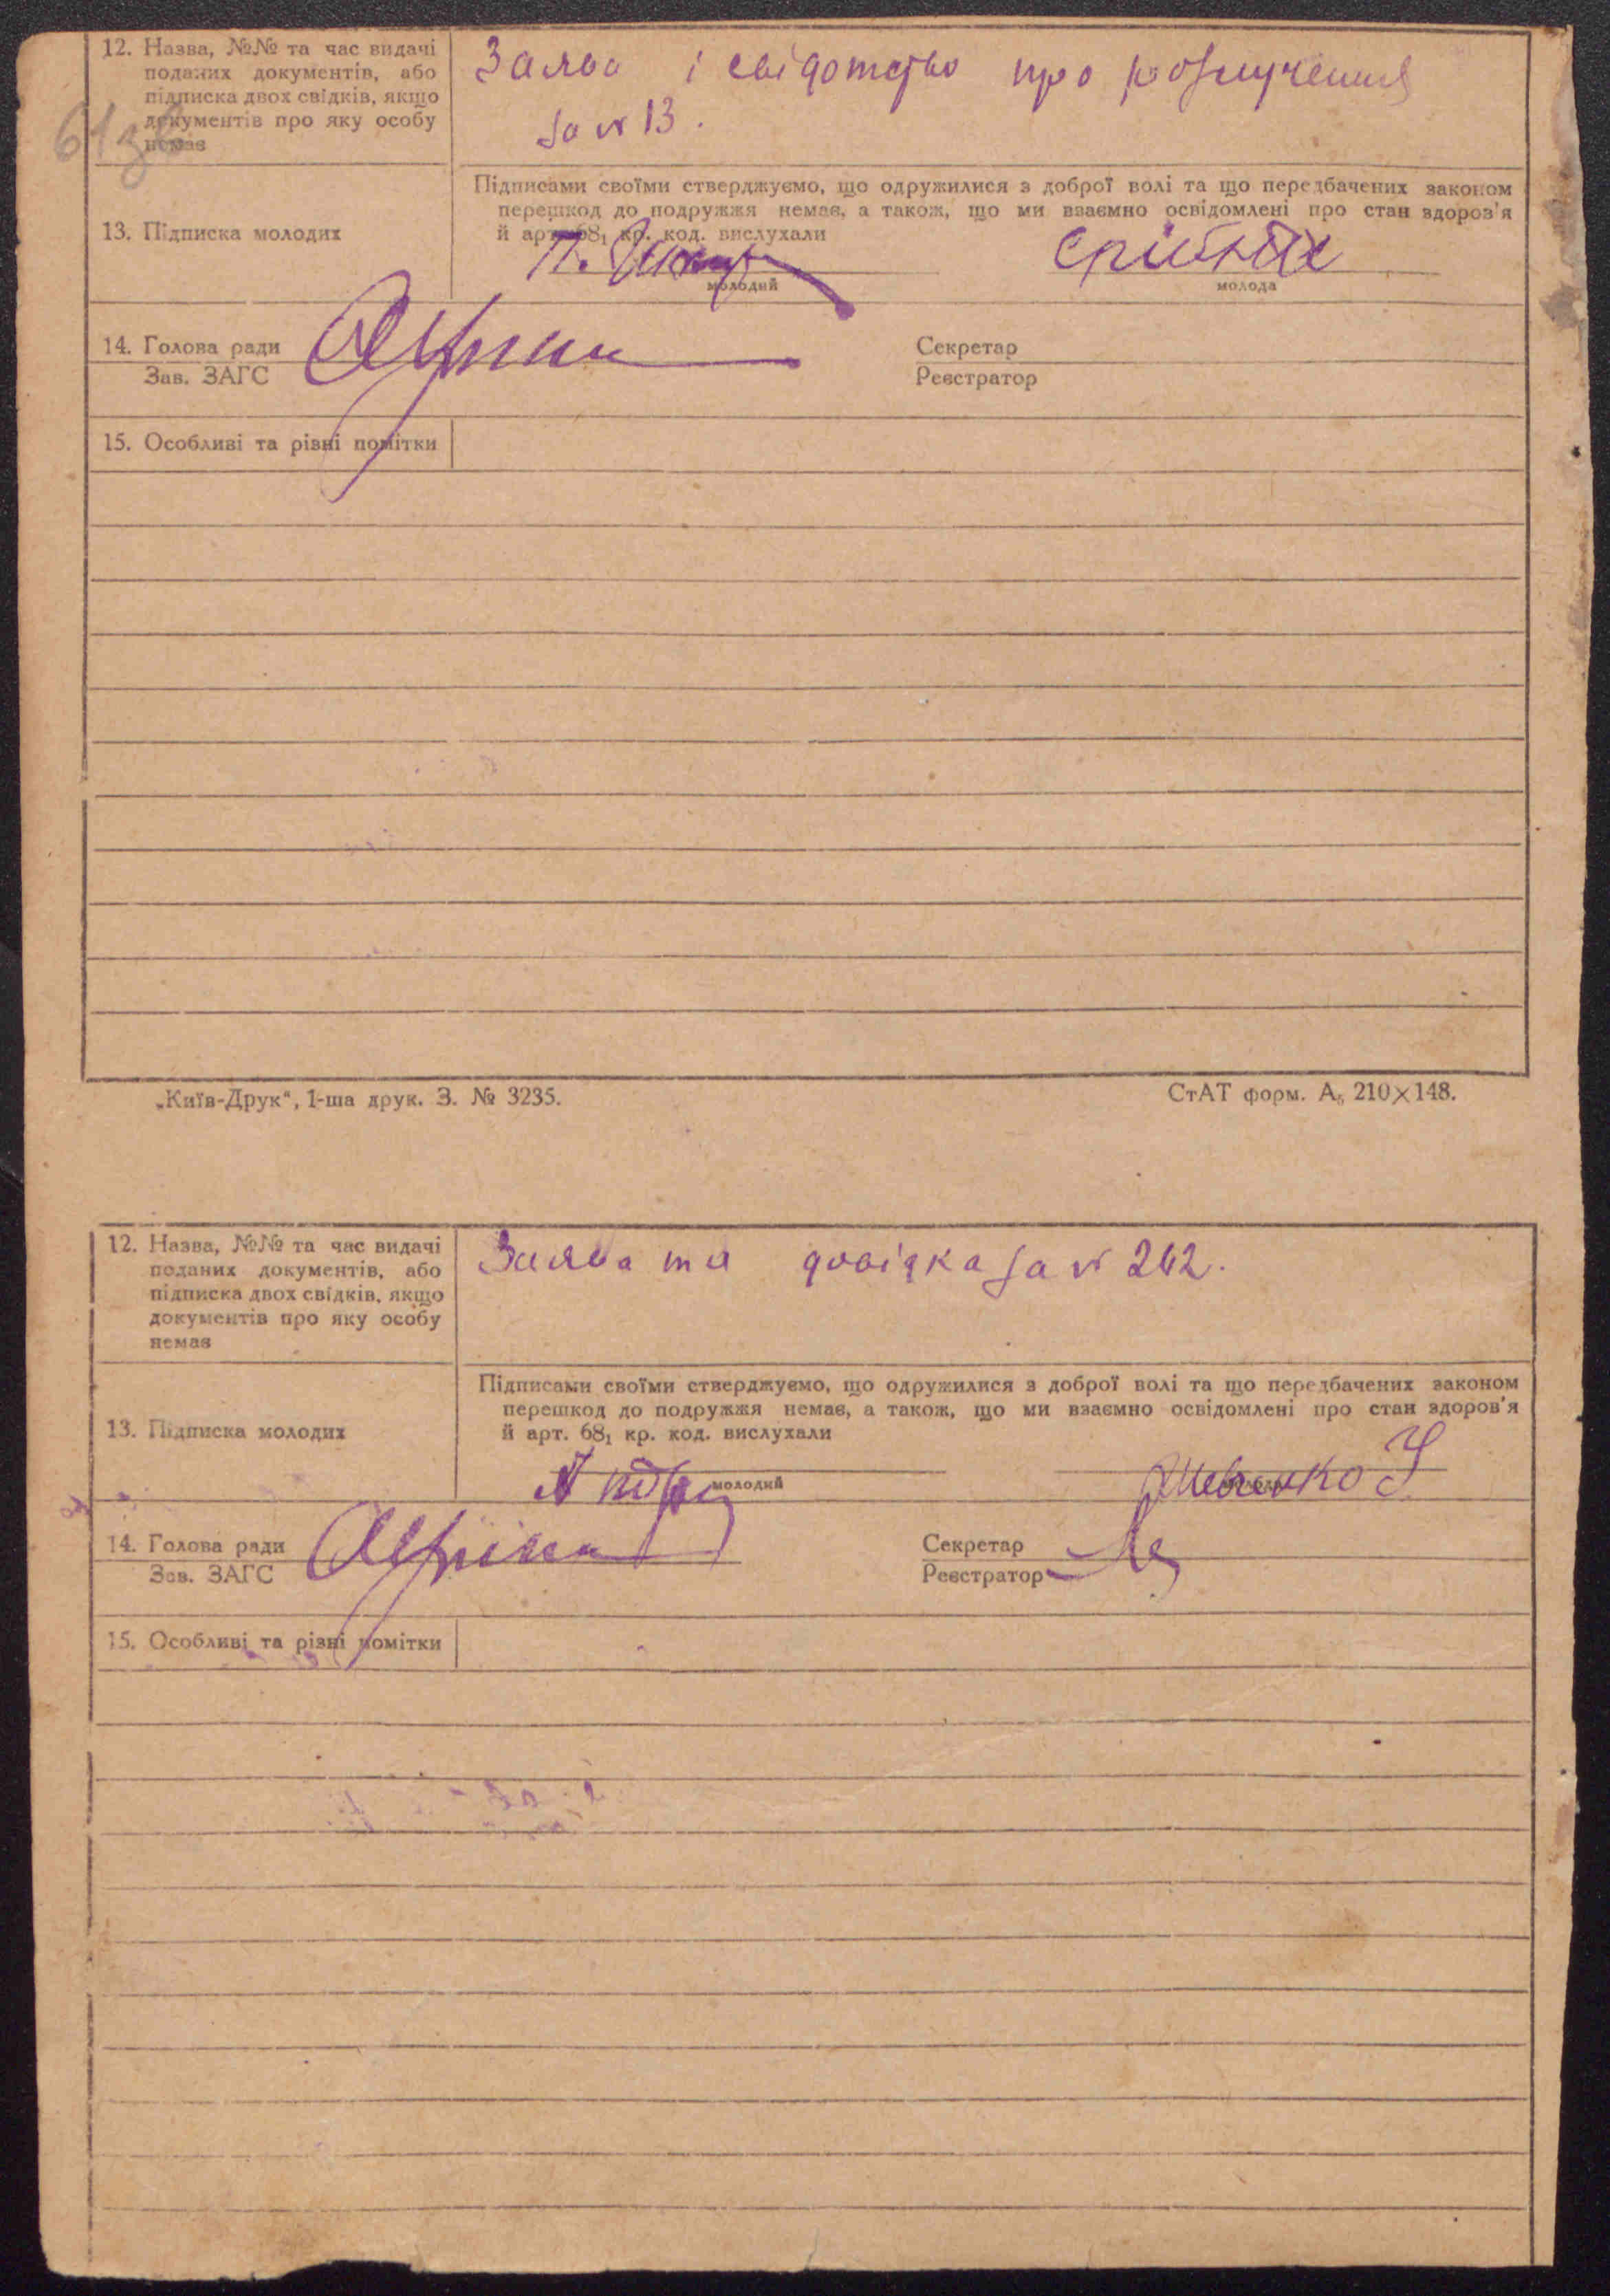 61зв
12. Назва, №№ та час видачі
поданих документів, або
підписка двох свідків, якщо
документів про яку особу
немає
Заява і свідотство про розлучення
за № 13.
13. Підписка молодих
Підписами своїми стверджуємо, що одружилися з доброї волі та що передбачених законом
перешкод до подружжя немає, а також, що ми взаємно освідомлені про стан здоров'я
й арт. 68₁ кр. код. вислухали
П.
молодий
молода
14. Голова ради
Зав. ЗАГС
Секретар
Реєстратор
15. Особливі та різні помітки
„Київ-Друк“, 1-ша друк. З. № 3235.
СтАТ форм. А₅ 210×148.
12. Назва, №№ та час видачі
поданих документів, або
підписка двох свідків, якщо
документів про яку особу
немає
Заява та довідка за № 242.
13. Підписка молодих
Підписами своїми стверджуємо, що одружилися з доброї волі та що передбачених законом
перешкод до подружжя немає, а також, що ми взаємно освідомлені про стан здоров'я
й арт. 68₁ кр. код. вислухали
молодий
Шевченко
14. Голова ради
Зав. ЗАГС
Секретар
Реєстратор
15. Особливі та різні помітки